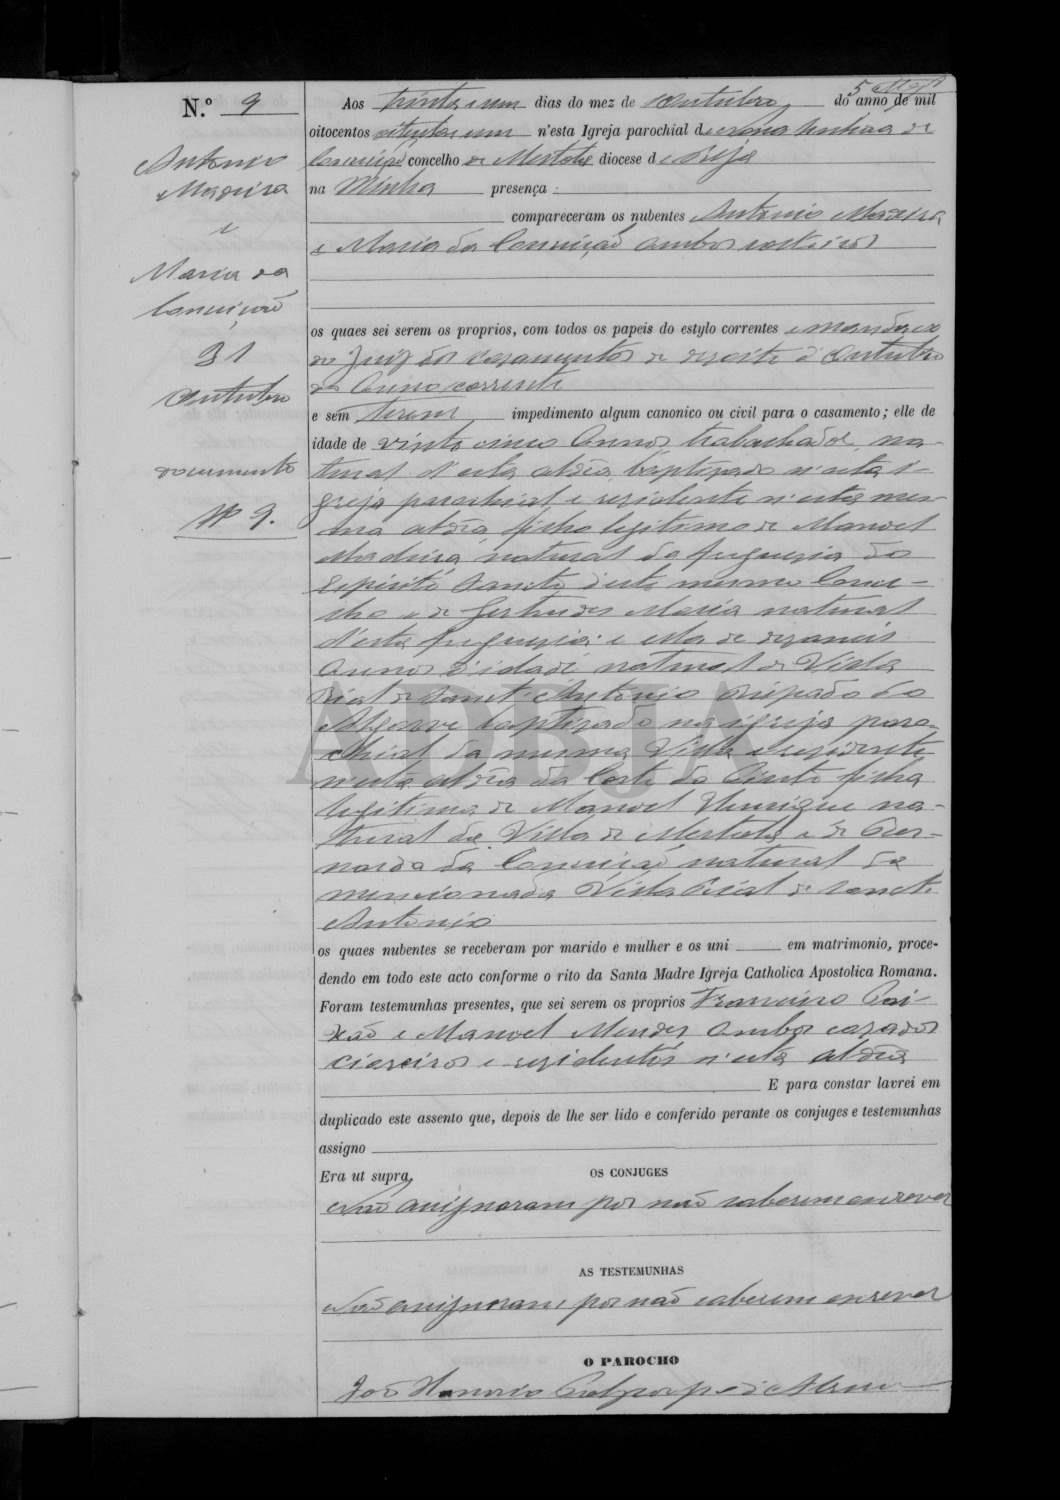 N.º 9
Antonio
Madeira
e
Maria da
Conceição
31
Outubro
Documento
Nº 9.
Aos trinta e um dias do mez de Outubro do anno de mil
oitocentos oitenta e um n'esta Igreja parochial de Nossa Senhora da
Conceição concelho de Mertola diocese de Beja
na minha presença
compareceram os nubentes Antonio Madeira
e Maria da Conceição ambos solteiros
os quaes sei serem os proprios, com todos os papeis do estylo correntes e mandado
do Juiz dos casamentos de dezoito d'Outubro
do Anno corrente
e sem terem impedimento algum canonico ou civil para o casamento; elle de
idade de vinte cinco Annos trabalhador, na-
tural d'esta aldêa, baptizado n'esta i-
greja parochial e residente n'esta mes-
ma aldêa, filho legitimo de Manoel
Madeira, natural da freguezia do
Espirito Santo, d'este mesmo Conce-
lho e de Gertrudes Maria natural
d'esta freguezia: e ella de dezaseis
Annos d'idade natural de Villa
Real de Santo Antonio Bispado do
Algarve baptizada na igreja paro-
chial da mesma Villa e residente
n'esta aldêa da Corte do Pinto filha
legitima de Manoel Henrique na-
tural da Villa de Mertola e de Ber-
narda da Conceição natural da
mencionada Villa Real de Santo
Antonio
os quaes nubentes se receberam por marido e mulher e os uni em matrimonio, proce-
dendo em todo este acto conforme o rito da Santa Madre Igreja Catholica Apostolica Romana.
Foram testemunhas presentes, que sei serem os proprios Francisco Pai-
xão e Manoel Mendes ambos casados
e residentes n'esta aldêa
E para constar lavrei em
duplicado este assento que, depois de lhe ser lido e conferido perante os conjuges e testemunhas
assigno
Era ut supra.
OS CONJUGES
Não assignaram por não saberem escrever
AS TESTEMUNHAS
Não assignaram por não saberem escrever
O PAROCHO
João
ADBJA